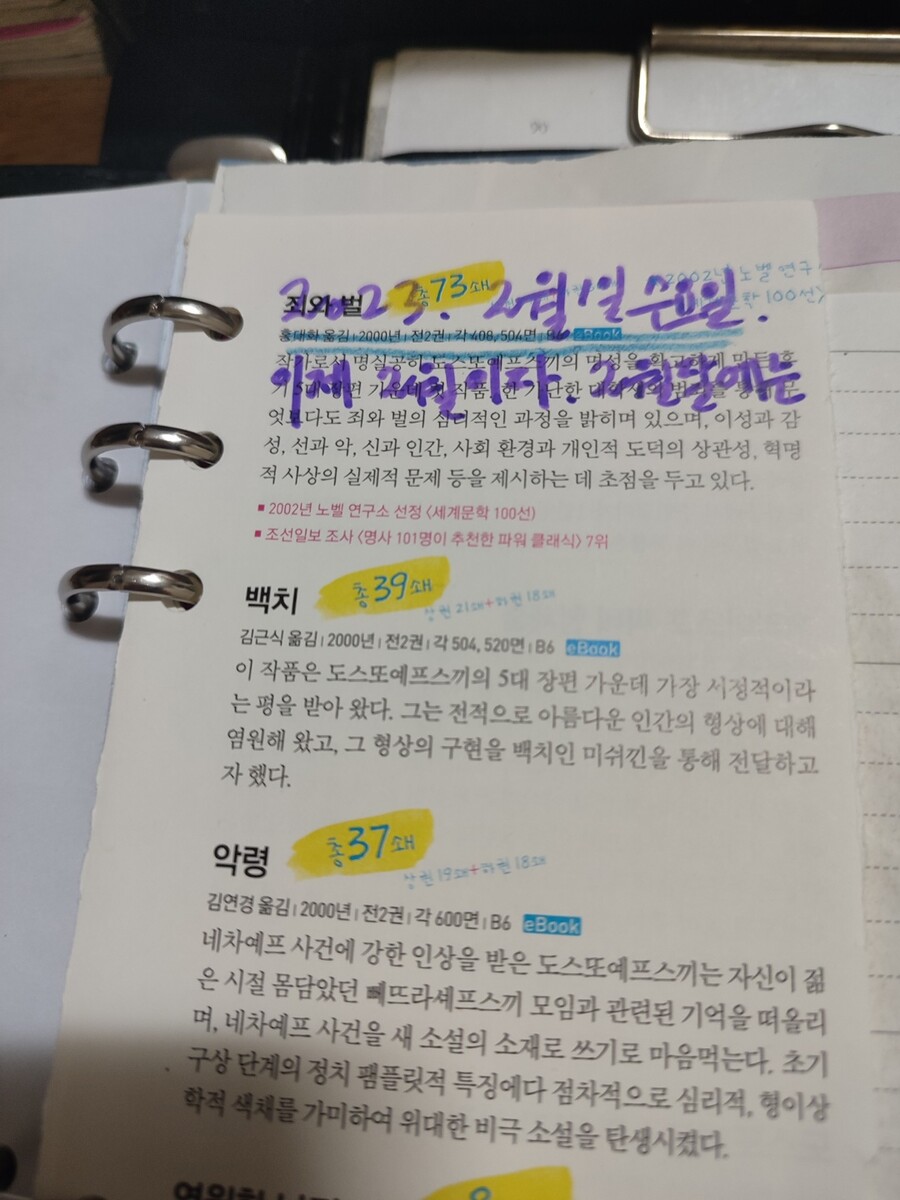 2023. 2월 1일 수요일.
죄와 벌 총 73쇄
2002년 노벨 연구
100선〉
홍대화 옮김 | 2000년 | 전2권 | 각 408, 504면 | B6 eBook
이제 2월이다. 2월달에는
엇보다도 죄와 벌의 심리적인 과정을 밝히며 있으며, 이성과 감
성, 선과 악, 신과 인간, 사회 환경과 개인적 도덕의 상관성, 혁명
적 사상의 실제적 문제 등을 제시하는 데 초점을 두고 있다.
■ 2002년 노벨 연구소 선정 〈세계문학 100선〉
■ 조선일보 조사 〈명사 101명이 추천한 파워 클래식〉 7위
백치 총 39쇄
상권 21쇄+하권 18쇄
김근식 옮김 | 2000년 | 전2권 | 각 504, 520면 | B6 eBook
이 작품은 도스또예프스끼의 5대 장편 가운데 가장 서정적이라
는 평을 받아 왔다. 그는 전적으로 아름다운 인간의 형상에 대해
염원해 왔고, 그 형상의 구현을 백치인 미쉬낀을 통해 전달하고
자 했다.
악령 총 37쇄
상권 19쇄+하권 18쇄
김연경 옮김 | 2000년 | 전2권 | 각 600면 | B6 eBook
네차예프 사건에 강한 인상을 받은 도스또예프스끼는 자신이 젊
은 시절 몸담았던 뻬뜨라셰프스끼 모임과 관련된 기억을 떠올리
며, 네차예프 사건을 새 소설의 소재로 쓰기로 마음먹는다. 초기
구상 단계의 정치 팸플릿적 특징에다 점차적으로 심리적, 형이상
학적 색채를 가미하여 위대한 비극 소설을 탄생시켰다.